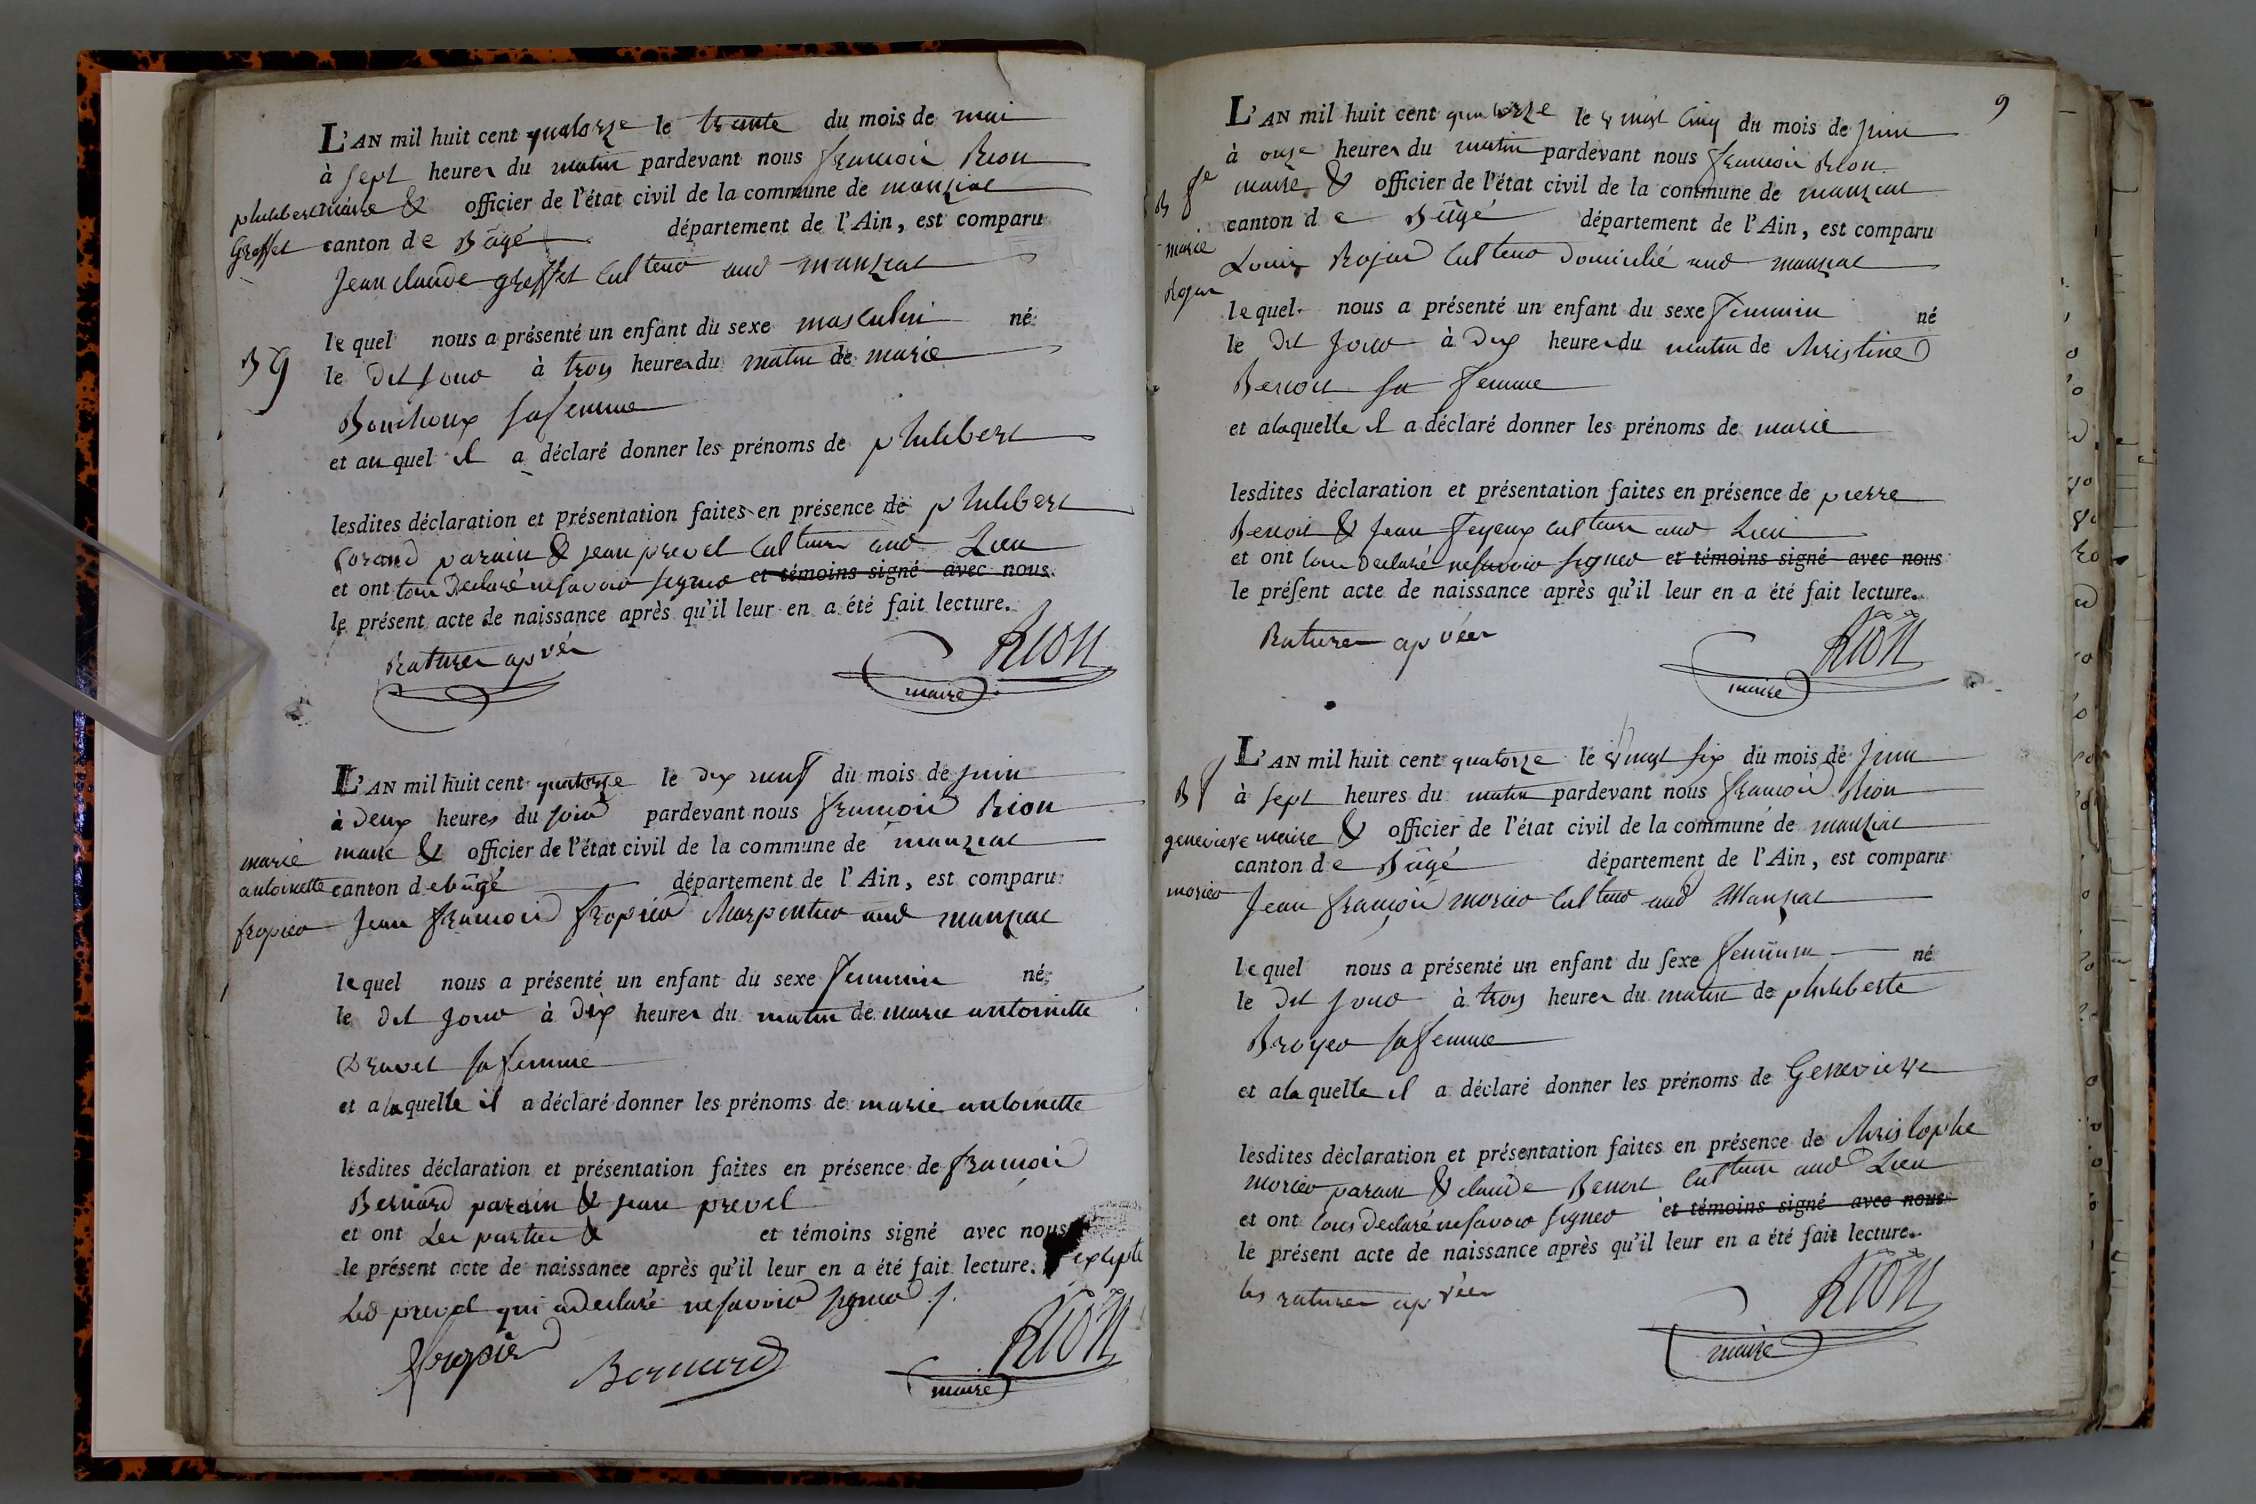 L'AN mil huit cent quatorze le trante du mois de mai
à sept heures du matin pardevant nous francois Rion
philibert maire & officier de l'état civil de la commune de manziat
Greffet canton de Bâgé département de l'Ain, est comparu
Jean claude greffet culteur aud manziat
lequel nous a présenté un enfant du sexe masculin né
B g le dit jour à trois heures du matin de marie
Bouchoux sa femme
et auquel il a déclaré donner les prénoms de philibert
lesdites déclaration et présentation faites en présence de philibert
parain & jean prevel culteurs aud Lieu
et ont tous declaré ne savoir signer et témoins signé avec nous
le présent acte de naissance après qu'il leur en a été fait lecture.
Ratures apvées
RION
maire
L'AN mil huit cent quatorze le dix neuf du mois de juin
à deux heures du soir pardevant nous francois Rion
marie maire & officier de l'état civil de la commune de manziat
antoinette canton de bâgé département de l'Ain, est comparu
fropier Jean francois fropier charpentier aud manziat
lequel nous a présenté un enfant du sexe feminin né
le dit jour à dix heures du matin de marie antoinette
Dravet sa femme
et a laquelle il a déclaré donner les prénoms de marie antoinette
lesdites déclaration et présentation faites en présence de francois
Bernard parain & jean prevel
et ont Les parties & et témoins signé avec nous
le présent acte de naissance après qu'il leur en a été fait lecture. excepté
Led prevel qui a declaré ne savoir signer ./.
fropier
Bernard
RION
maire
9
L'AN mil huit cent quatorze le vingt cinq du mois de juin
à onze heures du matin pardevant nous francois Rion
B fe maire & officier de l'état civil de la commune de manziat
canton de Bâgé département de l'Ain, est comparu
marie Louis Rojat culteur domicilié aud manziat
Rojat
lequel nous a présenté un enfant du sexe feminin né
le dit jour à dix heures du matin de christine
Benoit sa femme
et a laquelle il a déclaré donner les prénoms de marie
lesdites déclaration et présentation faites en présence de pierre
Benoit & Jean feyeux culteurs aud Lieu
et ont tous declaré ne savoir signer et témoins signé avec nous
le présent acte de naissance après qu'il leur en a été fait lecture.
Ratures apvées
RION
maire
L'AN mil huit cent quatorze le vingt six du mois de juin
B f à sept heures du matin pardevant nous francois Rion
genevieve maire & officier de l'état civil de la commune de manziat
canton de Bâgé département de l'Ain, est comparu
morier Jean françois morier culteur aud Manziat
lequel nous a présenté un enfant du sexe feminin né
le dit jour à trois heures du matin de philiberte
Broyer sa femme
et a la quelle il a déclaré donner les prénoms de Genevieve
lesdites déclaration et présentation faites en présence de christophe
morier parain & claude Benoit culteurs aud Lieu
et ont tous declaré ne savoir signer et témoins signé avec nous
le présent acte de naissance après qu'il leur en a été fait lecture.
les ratures apvées
RION
maire